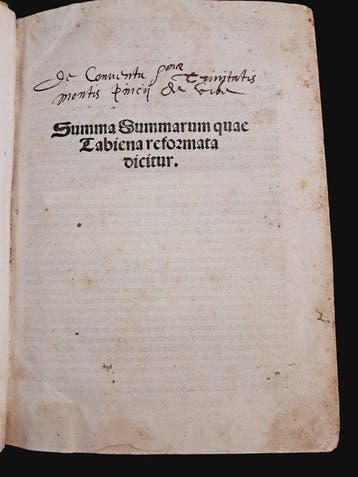 De Conventu smae Trinitatis
montis Pincij de Urbe
Summa Summarum quae
Tabiena reformata
dicitur.